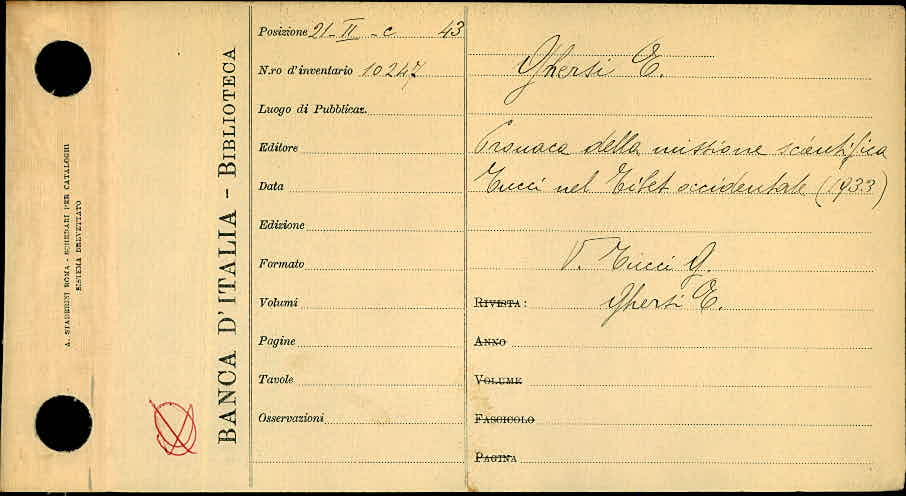 A. STADERINI ROMA - SCHEDARI PER CATALOGHI
SISTEMA BREVETTATO
BANCA D'ITALIA - BIBLIOTECA
Posizione 21-II-C 43
N.ro d'inventario 10247
Luogo di Pubblicaz.
Editore
Data
Edizione
Formato
Volumi
Pagine
Tavole
Osservazioni
Ghersi E.
Cronaca della missione scientifica
Tucci nel Tibet occidentale (1933)
V. Tucci G.
RIVISTA: Ghersi E.
ANNO
VOLUME
FASCICOLO
PAGINA